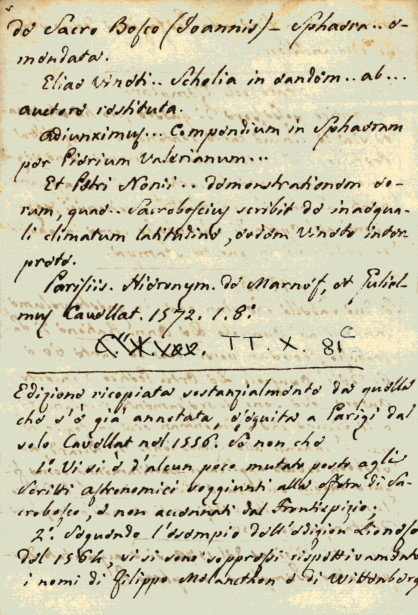 de Sacro Bosco (Joannis) - Sphaera.. e-
mendata.
Eliae Vineti.. Scholia in eandem.. ab...
auctore restituta.
Adiunximus... Compendium in Sphaeram
per Pierium Valerianum...
Et Petri Nonii.. demonstrationem eo-
rum, quae.. Sacroboscius scribit de inaequa-
li climatum latitudine, eodem Vineto inter-
prete.
Parisiis. Hieronym. de Marnef, et Guliel-
mus Cavellat. 1572. 1. 8.º
TT. X. 81 C
Edizione ricopiata sostanzialmente da quella
che s'è già annotata, eseguita a Parigi dal
solo Cavellat nel 1556. Se non che
1.º Vi si è d'alcun poco mutato posto agli
scritti astronomici soggiunti alla sfera di Sa-
crobosco, e non accennati dal Frontispizio;
2.º Seguendo l'esempio dell'edizion Lionese
del 1564, vi si sono soppressi rispettivamente
i nomi di Filippo Melancthon e di Wittenberg